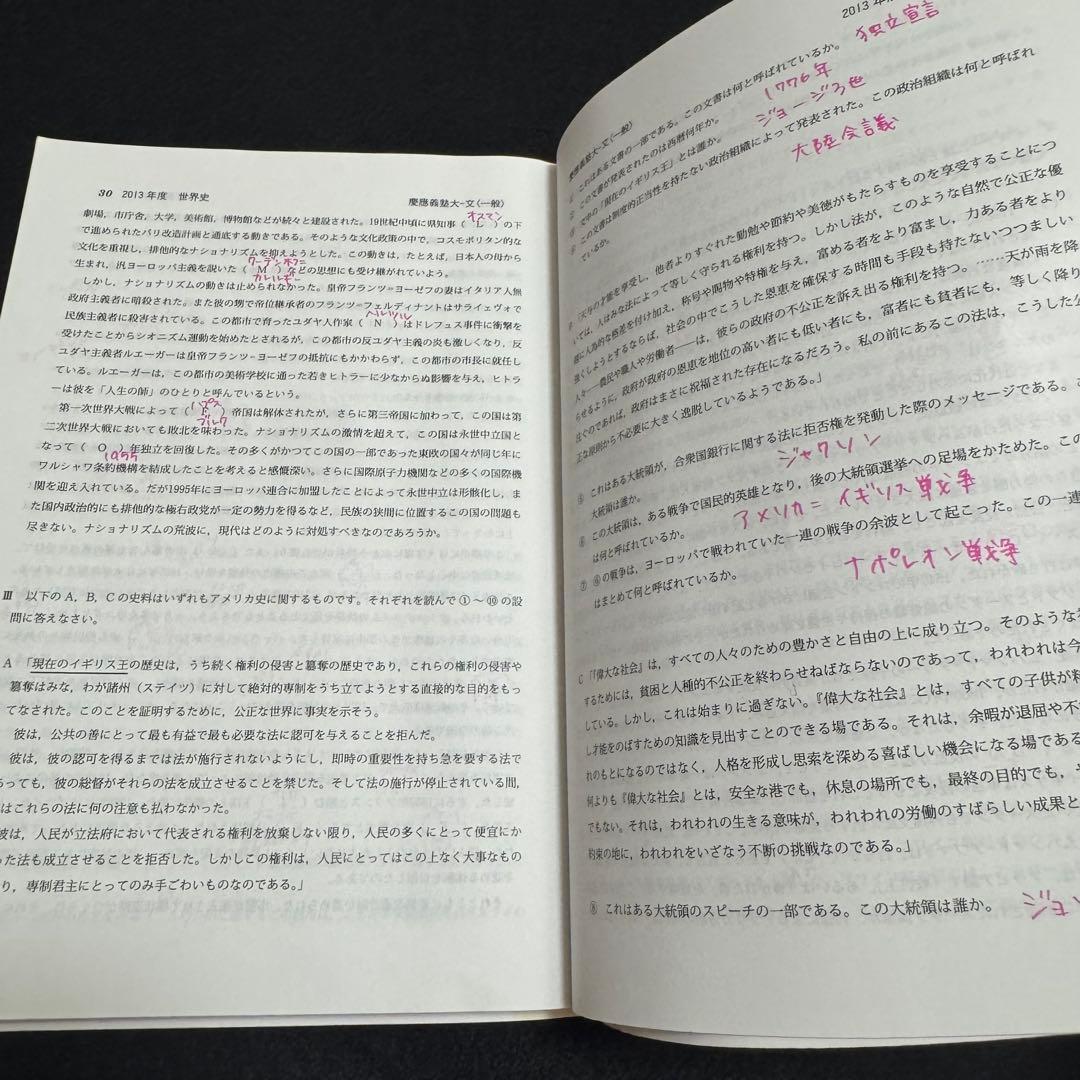 30 2013年度 世界史 慶應義塾大-文(一般)
劇場，市庁舎，大学，美術館，博物館などが続々と建設された。19世紀中頃に県知事（ L ）の下
オスマン
で進められたパリ改造計画と通底する動きである。そのような文化政策の中で，コスモポリタン的な
文化を重視し，排他的なナショナリズムを抑えようとした。この動きは，たとえば，日本人の母から
クーデンホフ
生まれ，汎ヨーロッパ主義を説いた（ M ）などの思想にも受け継がれていよう。
カレルギー
しかし，ナショナリズムの動きは止められなかった。皇帝フランツ=ヨーゼフの妻はイタリア人無
政府主義者に暗殺された。また彼の甥で帝位継承者のフランツ=フェルディナントはサライェヴォで
ヘルツル
民族主義者に殺害されている。この都市で育ったユダヤ人作家（ N ）はドレフュス事件に衝撃を
受けたことからシオニズム運動を始めたとされるが，この都市の反ユダヤ主義の炎も激しくなり，反
ユダヤ主義者ルエーガーは皇帝フランツ=ヨーゼフの抵抗にもかかわらず，この都市の市長に就任し
ている。ルエーガーは，この都市の美術学校に通った若きヒトラーに少なからぬ影響を与え，ヒトラ
ーは彼を「人生の師」のひとりと呼んでいるという。
ハプス
第一次世界大戦によって（ ）帝国は解体されたが，さらに第三帝国に加わって，この国は第
ブルク
二次世界大戦においても敗北を味わった。ナショナリズムの激情を超えて，この国は永世中立国と
なって（ O ）年独立を回復した。その多くがかつてこの国の一部であった東欧の国々が同じ年に
1955
ワルシャワ条約機構を結成したことを考えると感慨深い。さらに国際原子力機関などの多くの国際機
関を迎え入れている。だが1995年にヨーロッパ連合に加盟したことによって永世中立は形骸化し，ま
た国内政治的にも排他的な極右政党が一定の勢力を得るなど，民族の狭間に位置するこの国の問題も
尽きない。ナショナリズムの荒波に，現代はどのように対処すべきなのであろうか。
Ⅲ 以下のA，B，Cの史料はいずれもアメリカ史に関するものです。それぞれを読んで①～⑩の設
問に答えなさい。
A 「現在のイギリス王の歴史は，うち続く権利の侵害と簒奪の歴史であり，これらの権利の侵害や
簒奪はみな，わが諸州（ステイツ）に対して絶対的専制をうち立てようとする直接的な目的をもっ
てなされた。このことを証明するために，公正な世界に事実を示そう。
彼は，公共の善にとって最も有益で最も必要な法に認可を与えることを拒んだ。
彼は，彼の認可を得るまでは法が施行されないようにし，即時の重要性を持ち急を要する法で
あっても，彼の総督がそれらの法を成立させることを禁じた。そして法の施行が停止されている間，
はこれらの法に何の注意も払わなかった。
彼は，人民が立法府において代表される権利を放棄しない限り，人民の多くにとって便宜にか
った法も成立させることを拒否した。しかしこの権利は，人民にとってはこの上なく大事なもの
り，専制君主にとってのみ手ごわいものなのである。」
2013年
慶應義塾大-文(一般)
① これはある文書の一部である。この文書は何と呼ばれているか。
独立宣言
② この文書が発表されたのは西暦何年か。
1776年
③ 文中の「現在のイギリス王」とは誰か。
ジョージ3世
④ この文書は制度的正当性を持たない政治組織によって発表された。この政治組織は何と呼ばれ
ているか。
大陸会議
B 「天与の才能を享受し，他者よりすぐれた勤勉や節約や美徳がもたらすものを享受することにつ
いては，人はみな法によって等しく守られる権利を持つ。しかし法が，このような自然で公正な優
越に人為的な格差を付け加え，称号や賜物や特権を与え，富める者をより富まし，力ある者をより
強くしようとするならば，社会の中でこうした恩恵を確保する時間も手段も持たないつつましい
人々――農民や職人や労働者――は，彼らの政府の不公正を訴え出る権利を持つ。……天が雨を降
らせるように，政府が政府の恩恵を地位の高い者にも低い者にも，富者にも貧者にも，等しく降り
注ぐのであれば，政府はまさに祝福された存在になるだろう。私の前にあるこの法は，こうした公
正な原則から不必要に大きく逸脱しているようである。」
⑤ これはある大統領が，合衆国銀行に関する法に拒否権を発動した際のメッセージである。
大統領は誰か。
ジャクソン
⑥ この大統領は，ある戦争で国民的英雄となり，後の大統領選挙への足場をかためた。この
は何と呼ばれているか。
アメリカ=イギリス戦争
⑦ ⑥の戦争は，ヨーロッパで戦われていた一連の戦争の余波として起こった。この一連
はまとめて何と呼ばれているか。
ナポレオン戦争
C 「『偉大な社会』は，すべての人々のための豊かさと自由の上に成り立つ。そのような
するためには，貧困と人種的不公正を終わらせねばならないのであって，われわれは今
している。しかし，これは始まりに過ぎない。『偉大な社会』とは，すべての子供が精
し才能をのばすための知識を見出すことのできる場である。それは，余暇が退屈や不
れのもとになるのではなく，人格を形成し思索を深める喜ばしい機会になる場である
何よりも『偉大な社会』とは，安全な港でも，休息の場所でも，最終の目的でも，
でもない。それは，われわれの生きる意味が，われわれの労働のすばらしい成果と
約束の地に，われわれをいざなう不断の挑戦なのである。」
⑧ これはある大統領のスピーチの一部である。この大統領は誰か。
ジョ